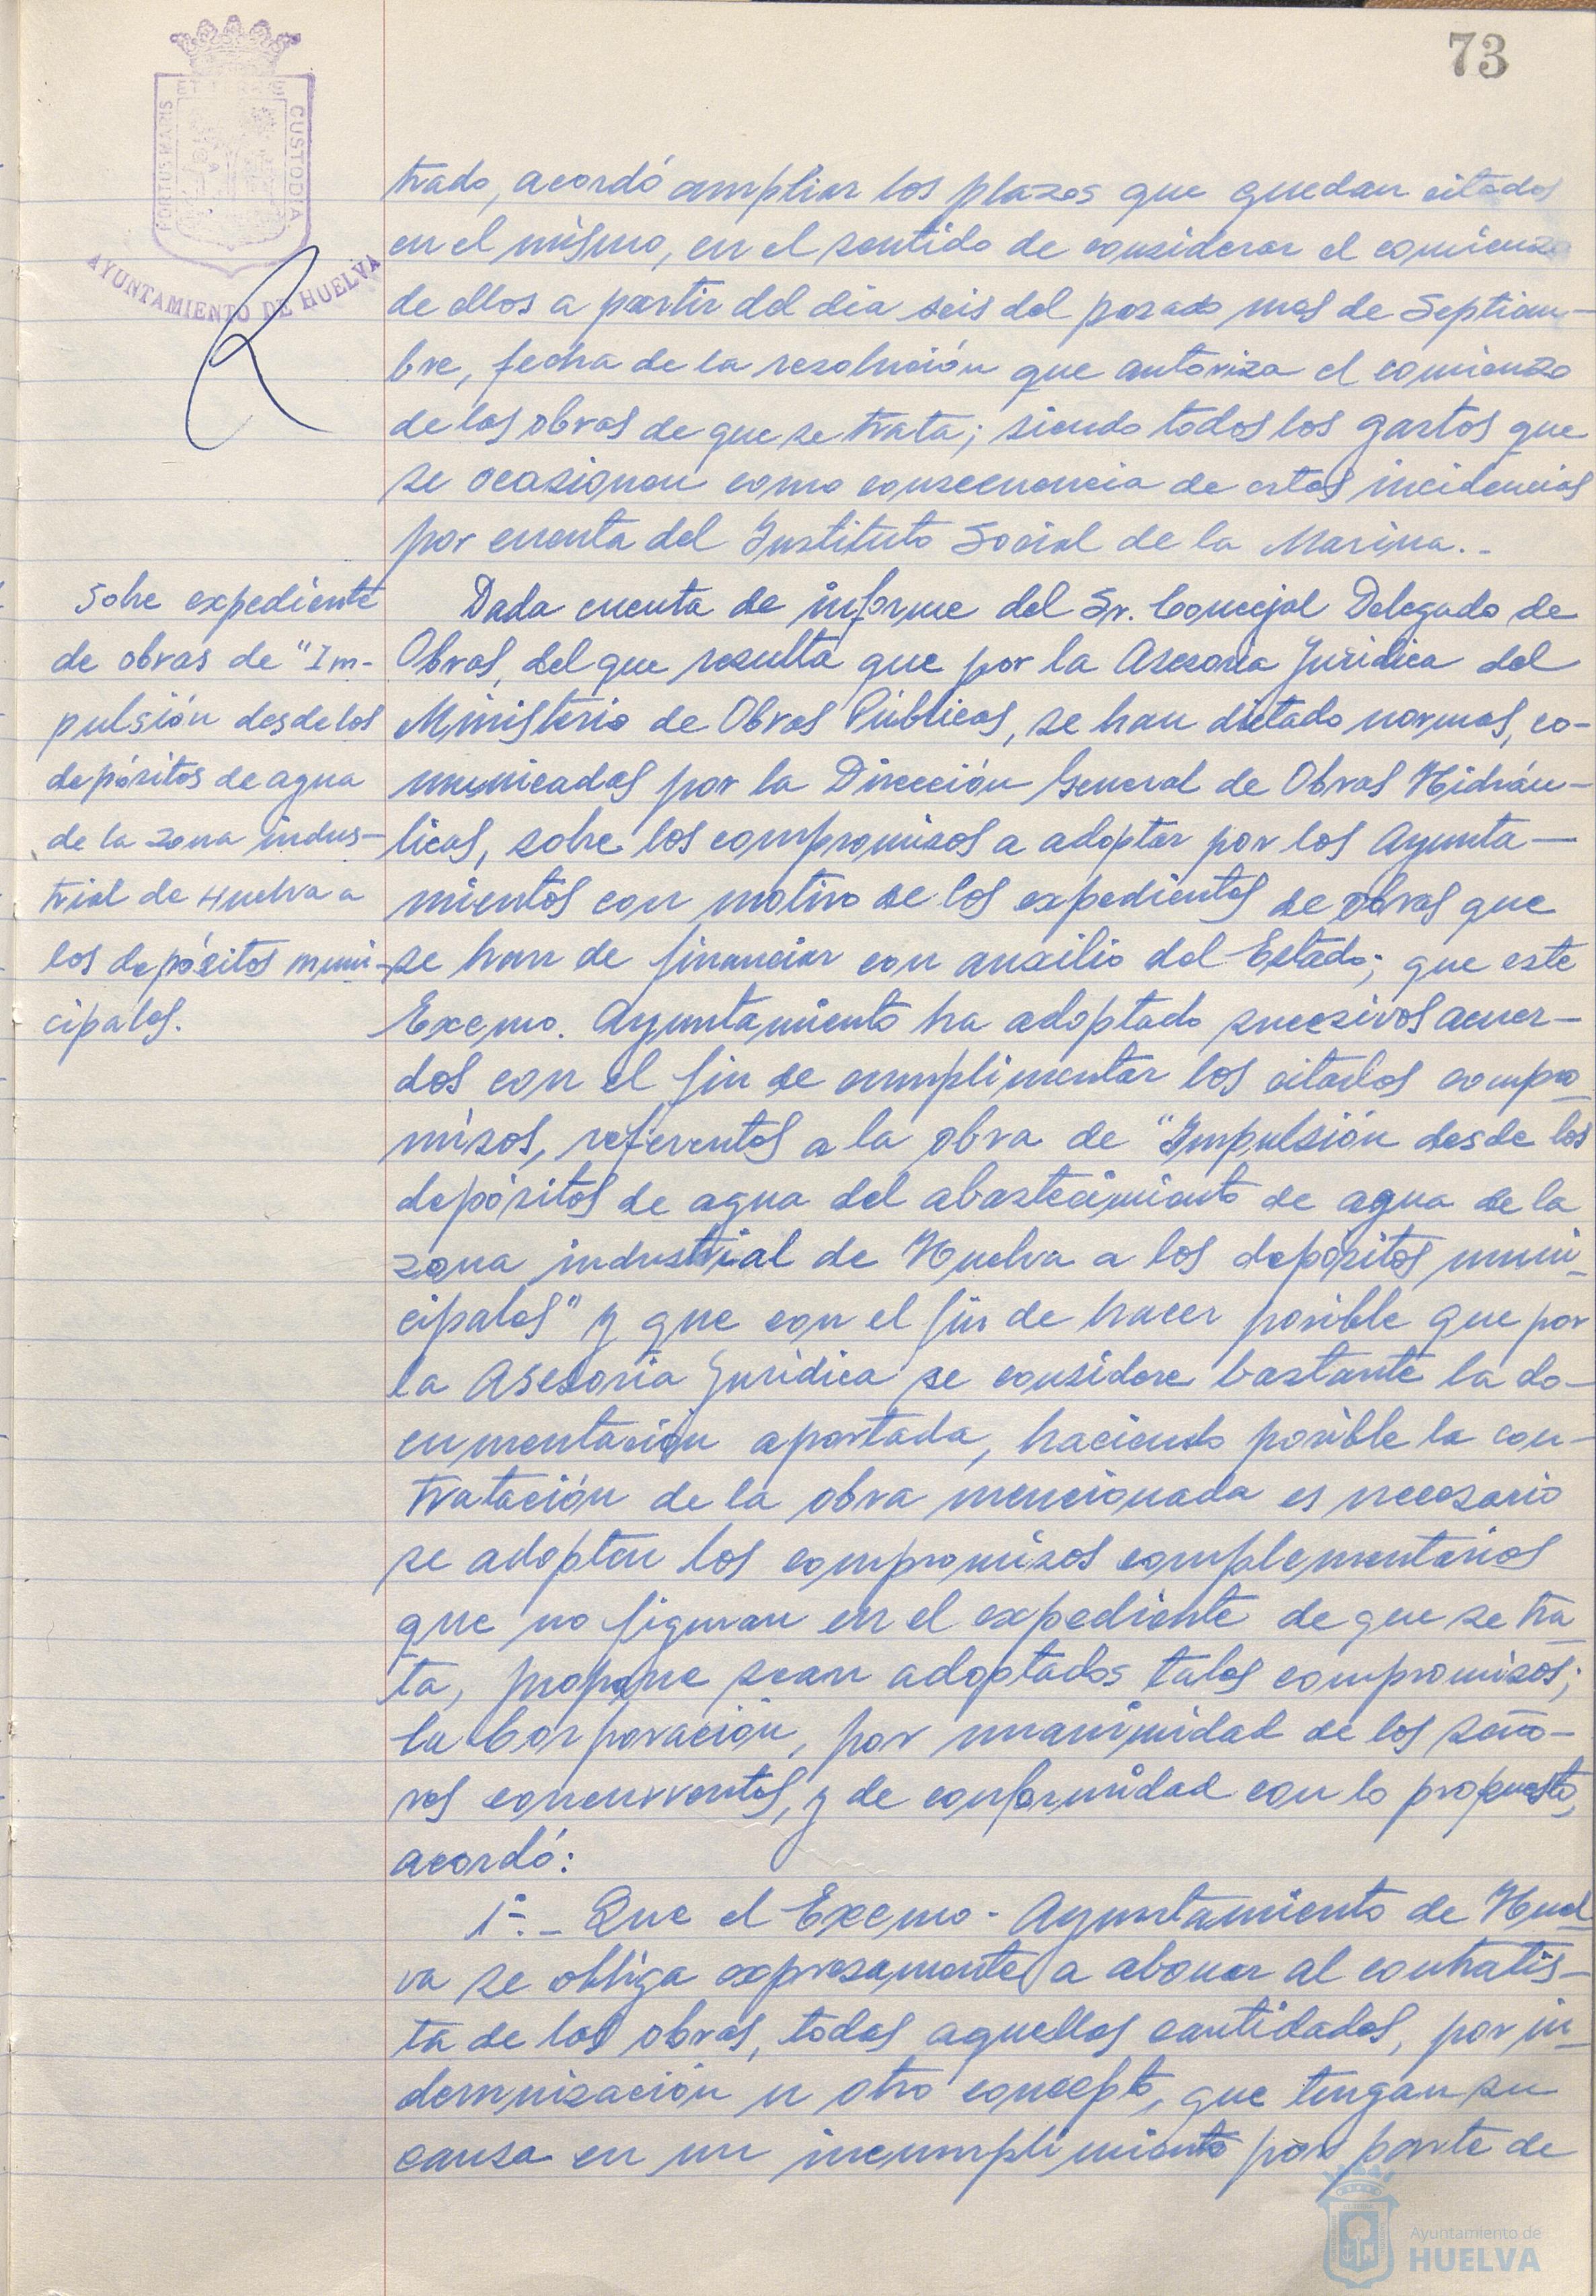 73
PORTUS MARIS
ET TERRAE
CUSTODIA
AYUNTAMIENTO DE HUELVA
trado, acordó ampliar los plazos que quedan citados
en el mismo, en el sentido de considerar el comienzo
de ellos a partir del día seis del pasado mes de Septiem-
bre, fecha de la resolución que autoriza el comienzo
de las obras de que se trata; siendo todos los gastos que
se ocasionen como consecuencia de estas incidencias
por cuenta del Instituto Social de la Marina.-
Sobre expediente
de obras de "Im-
pulsión desde los
depósitos de agua
de la zona indus-
trial de Huelva a
los depósitos muni-
cipales.
Dada cuenta de informe del Sr. Concejal Delegado de
Obras, del que resulta que por la Asesoría Jurídica del
Ministerio de Obras Públicas, se han dictado normas, co-
municadas por la Dirección General de Obras Hidráu-
licas, sobre los compromisos a adoptar por los Ayunta-
mientos con motivo de los expedientes de obras que
se han de financiar con auxilio del Estado; que este
Excmo. Ayuntamiento ha adoptado sucesivos acuer-
dos con el fin de cumplimentar los citados compro-
misos, referentes a la obra de "Impulsión desde los
depósitos de agua del abastecimiento de agua de la
zona industrial de Huelva a los depósitos muni-
cipales" y que con el fin de hacer posible que por
la Asesoría Jurídica se considere bastante la do-
cumentación aportada, haciendo posible la con-
tratación de la obra mencionada es necesario
se adopten los compromisos complementarios
que no figuran en el expediente de que se tra-
ta, propone sean adoptados tales compromisos;
la Corporación, por unanimidad de los seño-
res concurrentes, y de conformidad con lo propuesto,
acordó:
1º.- Que el Excmo. Ayuntamiento de Huel
va se obliga expresamente a abonar al contratis-
ta de las obras, todas aquellas cantidades, por in-
demnización u otro concepto, que tengan su
causa en un incumplimiento por parte de
Ayuntamiento de
HUELVA